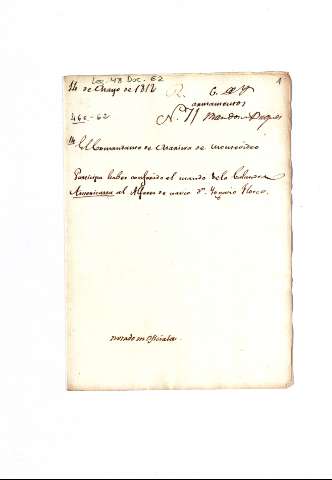 Leg. 48 Doc. 62
14 de Mayo de 1812 R. 1
armamentos
N. 71
46c-62
El Comandante de Marina de Montevideo
Participa haber conferido el mando de la Goleta
Americana al Alferez de navio Dn. Ignacio Flores.
notado en Oficiales